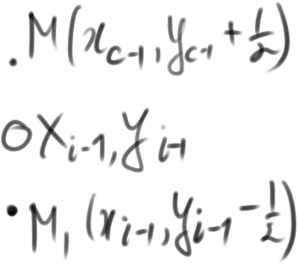 . M(x_{c-1}, y_{c-1} + \frac{1}{2})
O X_{i-1}, y_{i-1}
• M_1 (x_{i-1}, y_{i-1} - \frac{1}{2})